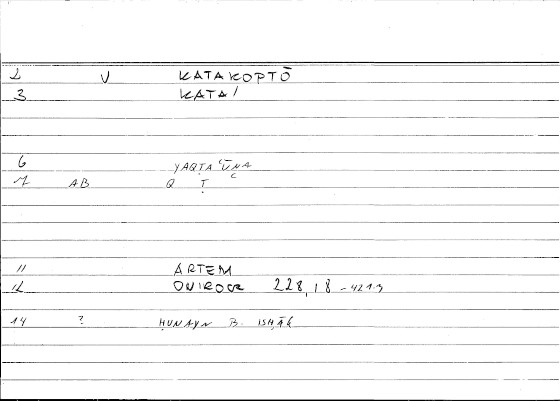 2 V KATAKOPTŌ
3 KATA/
6 YAQṬAʿŪNA
7 AB Q Ṭ
11 ARTEM
12 ONIROCR 228,18 - 421.9
14 ? ḤUNAYN B. ISḤĀQ